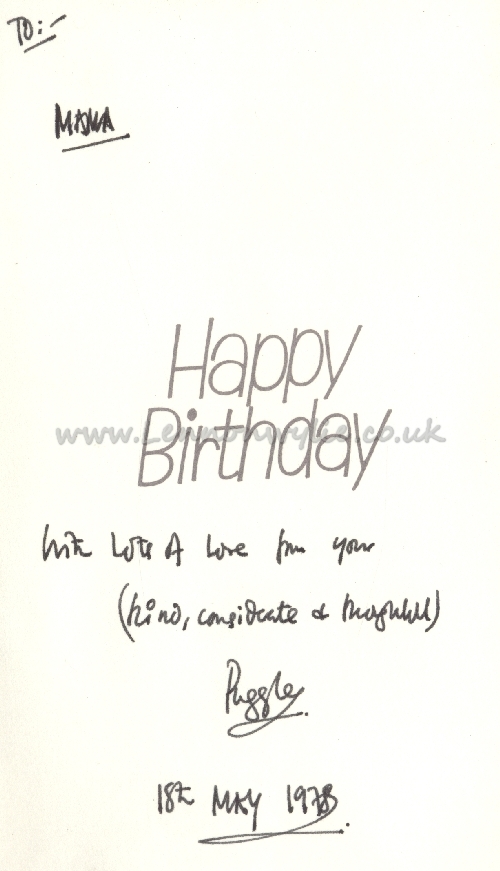 TO:-
Happy
Birthday
www.Lennonwylie.co.uk
with Lots A Love from your
(kind, considerate & thoughtful)
Puggley.
18th MAY 1978.